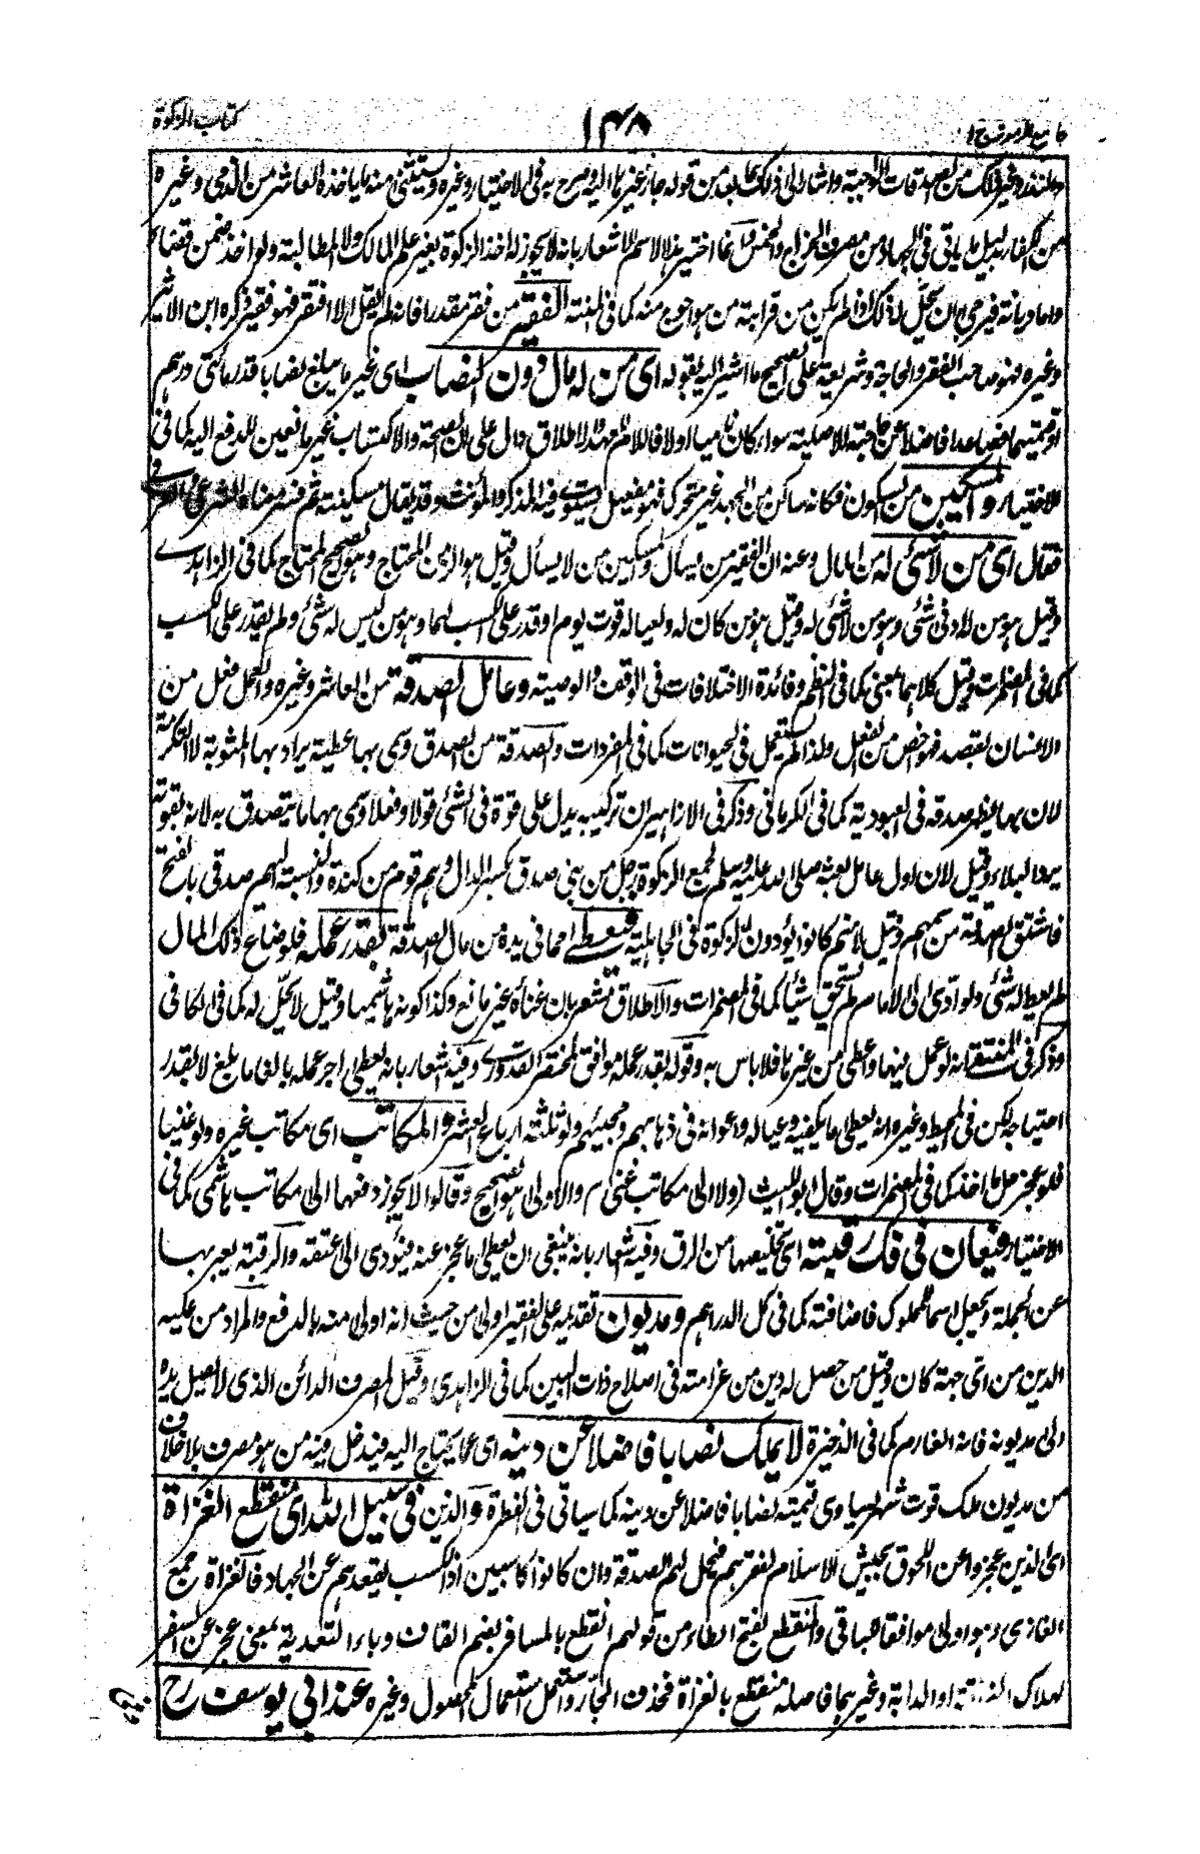 جامع الرموز ج ١ ١٣٨ كتاب الزكوة
والنذر وغير ذلك من الصدقات الواجبة واشار الى ذلك بما بعد من قوله جاز غيرها اليه وصرح به فى الاختيار وغيره ويستثنى منه ما ياخذه العاشر من الذمى وغيره
من الكفار بدليل ما ياتى فى الجهاد من مصرف الخراج والخمس وانما اختير هذا الاسم للاشعار بانه لا يجوز له اخذ الزكوة بغير علم المالك ولا المطالبة ولو اخذ ضمن قضاء
واما ديانة فيرجى ان يحل له ذلك اذا لم يكن من قرابته من هو احوج منه كما فى المنية الفقير من فقر مقدرا فانه لم يقل الا افتقر فهو فقير ذكره ابن الاثير
وغيره فهو صاحب الفقر والحاجة وشريعة على الصحيح ما اشير اليه بقوله اى من له مال دون النصاب اى غير ما يبلغ نصابا قدر مائتى درهم
او قيمتها فصاعدا فاضلا عن حاجته الاصلية سواء كان ناميا اولا فاللام للعهد والاطلاق دال على ان الصحة والاكتساب غير مانعين للدفع اليه كما فى
الاختيار والمسكين من السكون فكانه ساكن من الجهد غير متحرك فهو مفعيل يستوى فيه المذكر والمؤنث وقد يقال مسكينة ثم فسر معناه الشرعى
فقال اى من لا شئ له من المال وعنه ان الفقير من يسأل والمسكين من لا يسأل وقيل هو الزمن المحتاج وهو الصحيح المحتاج كما فى الزاهدى
وقيل هو من له ادنى شئ وهو من لا شئ له وقيل هو من كان له ولعياله قوت يوم او قدر على الكسب لهما وهو من ليس له شئ ولم يقدر على الكسب
كما فى المضمرات وقيل كلاهما بمعنى كما فى النظم وفائدة الاختلافات فى الوقف والوصية وعامل الصدقة من العاشر وغيره والعمل فعل من
الانسان بقصد فهو اخص من الفعل ولذا لم يستعمل فى الحيوانات كما فى المفردات والصدقة من الصدق وهى بها عطية يراد بها المثوبة لا التكرمة
لان بها يظهر صدقه فى العبودية كما فى الكرمانى وذكر فى الازاهير ان تركيبه يدل على قوة فى الشئ قولا وفعلا وسمى بها ما يتصدق به لانه بقوته
يرد البلاء وقيل لان اول عامل بعثه صلى الله عليه وسلم لجمع الزكوة رجل من بنى صدق بكسر الدال وهم قوم من كندة والنسبة اليهم صدقى بالفتح
فاشتق الصدقة من اسمهم وقيل لانهم كانوا يؤدون الزكوة فى الجاهلية فيعطى مما فى يده من مال الصدقة بقدر عمله فلو ضاع ذلك المال
لم يعط له شئ ولو ادى الى الامام لم يستحق شيئا كما فى المضمرات والاطلاق مشعر بان غناه غير مانع وكذا كونه هاشميا وقيل لا يحل له كما فى الكافى
وذكر فى المنتقى انه لو عمل فيها واعطى من غيرها فلا باس به وقوله بقدر عمله موافق لمختصر القدورى وفيه اشعار بانه يعطى اجر عمله بالغا ما بلغ لا بقدر
احتياجه لكن فى المحيط وغيره انه يعطى ما يكفيه وعياله واعوانه فى ذهابهم ومجيئهم ولو ثلثة ارباع العشر والمكاتب اى مكاتب غيره ولو غنيا
فلو عجز حل ما اخذ كما فى المضمرات وقال ابو الليث (ولا الى مكاتب غنى) والاولى هو الصحيح وقالوا لا يجوز دفعها الى مكاتب هاشمى كما فى
الاختيار فيعان فى فك رقبته اى تخليصها من الرق وفيه اشعار بانه ينبغى ان يعطى ما عجز عنه فيؤدى الى عتقه والرقبة يعبر بها
عن الجملة وتجعل اسما للمملوك فاضافته كما فى كل الدراهم ومديون تقديمه على الفقير اولى من حيث انه اولى منه بالدفع والمراد من عليه
الدين من اى جهة كان وقيل من حصل له دين من غرامته فى اصلاح ذات البين كما فى الزاهدى وقيل المصرف الدائن الذى لا يصل يده
الى مديونه فانه الغارم كما فى الذخيرة لا يملك نصابا فاضلا عن دينه اى عما يحتاج اليه فيدخل فيه من هو مصرف بلا خلاف
من مديون ملك قوت شهر يساوى قيمته نصابا فاضلا عن دينه كما سياتى فى الفطرة والذين فى سبيل الله اى منقطع الغزاة
اى الذين عجزوا عن اللحوق بجيش الاسلام لفقرهم فيحل لهم الصدقة وان كانوا كاسبين اذ الكسب يقعدهم عن الجهاد فالغزاة جمع
الغازى وهو اولى موافقا لما ياتى والمنقطع بفتح الطاء من قولهم انقطع بالمسافر بضم القاف وباء التعدية بمعنى عجز عن السفر
لهلاك النفقة او الدابة وغيرهما فاصله منقطع بالغزاة فحذف الجار واستعمل استعمال الموصول وغيره عند ابي يوسف رح